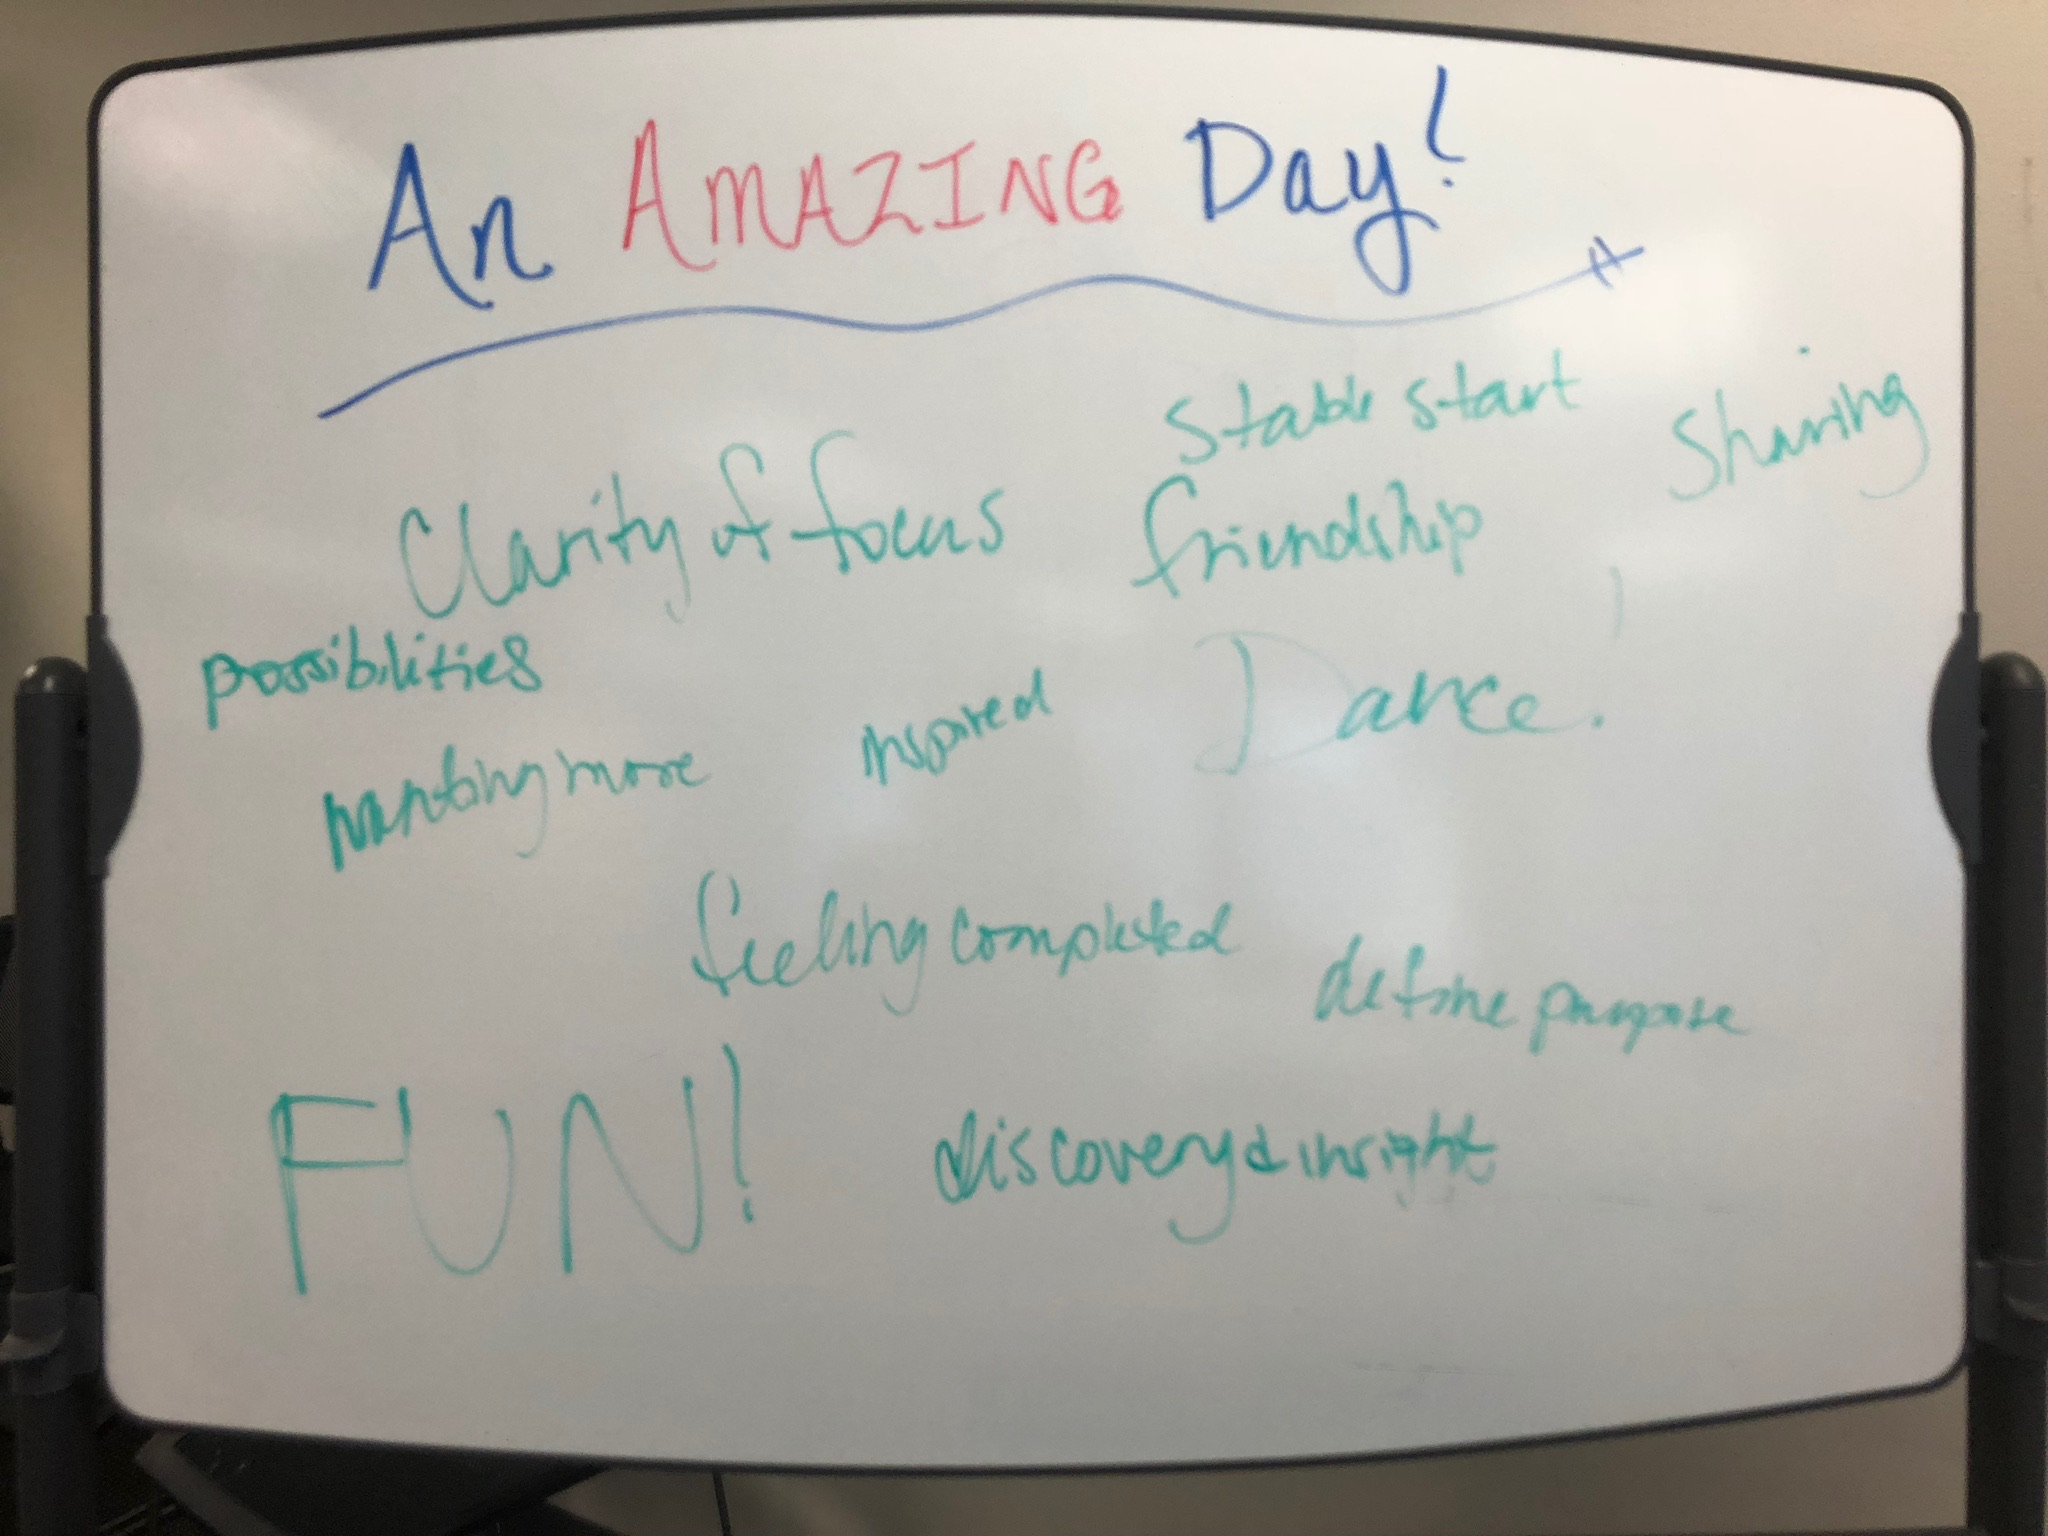 An AMAZING Day!
Stable start
Sharing
Clarity of focus
friendship
possibilities
Dance!
wanting more
inspired
feeling completed
define purpose
FUN!
discovery & insight